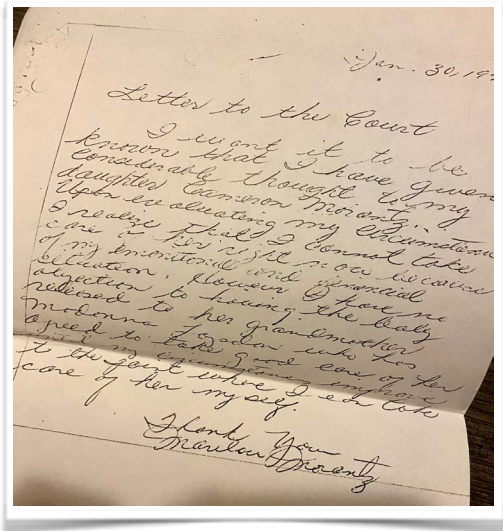 Jan. 30, 19
Letter to the Court
I want it to be
known that I have given
considerable thought to my
daughter Cameron Morantz.
Upon evaluating my circumstan
I realize that I cannot take
care of her right now because
of my emotional and financial
situation. However I have no
objection to having the baby
released to her grandmother
Madonna who has
agreed to take good care of her
until my improve
to the point where I can take
care of her myself.
Thank You
Marilou Morantz